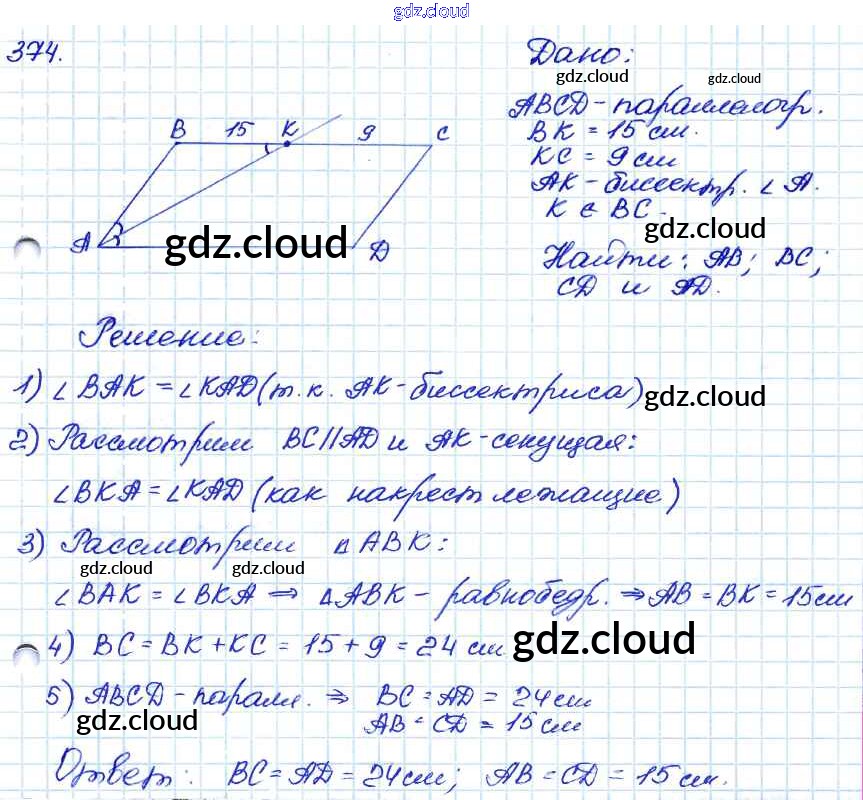 gdz.cloud
374.
Дано:
gdz.cloud
gdz.cloud
ABCD - параллелогр.
BK = 15 см.
KC = 9 см
AK - биссектр. ∠ A.
K ∈ BC.
gdz.cloud
Найти: AB; BC;
CD и AD.
B 15 K 9 C
A D
gdz.cloud
Решение:
1) ∠ BAK = ∠ KAD (т.к. AK - биссектриса)
gdz.cloud
2) Рассмотрим BC || AD и AK - секущая:
∠ BKA = ∠ KAD (как накрест лежащие)
3) Рассмотрим △ ABK:
gdz.cloud gdz.cloud
∠ BAK = ∠ BKA ⇒ △ABK - равнобедр. ⇒ AB = BK = 15 см
4) BC = BK + KC = 15 + 9 = 24 см
gdz.cloud
5) ABCD - паралл. ⇒ BC = AD = 24 см
AB = CD = 15 см
gdz.cloud
Ответ: BC = AD = 24 см; AB = CD = 15 см.